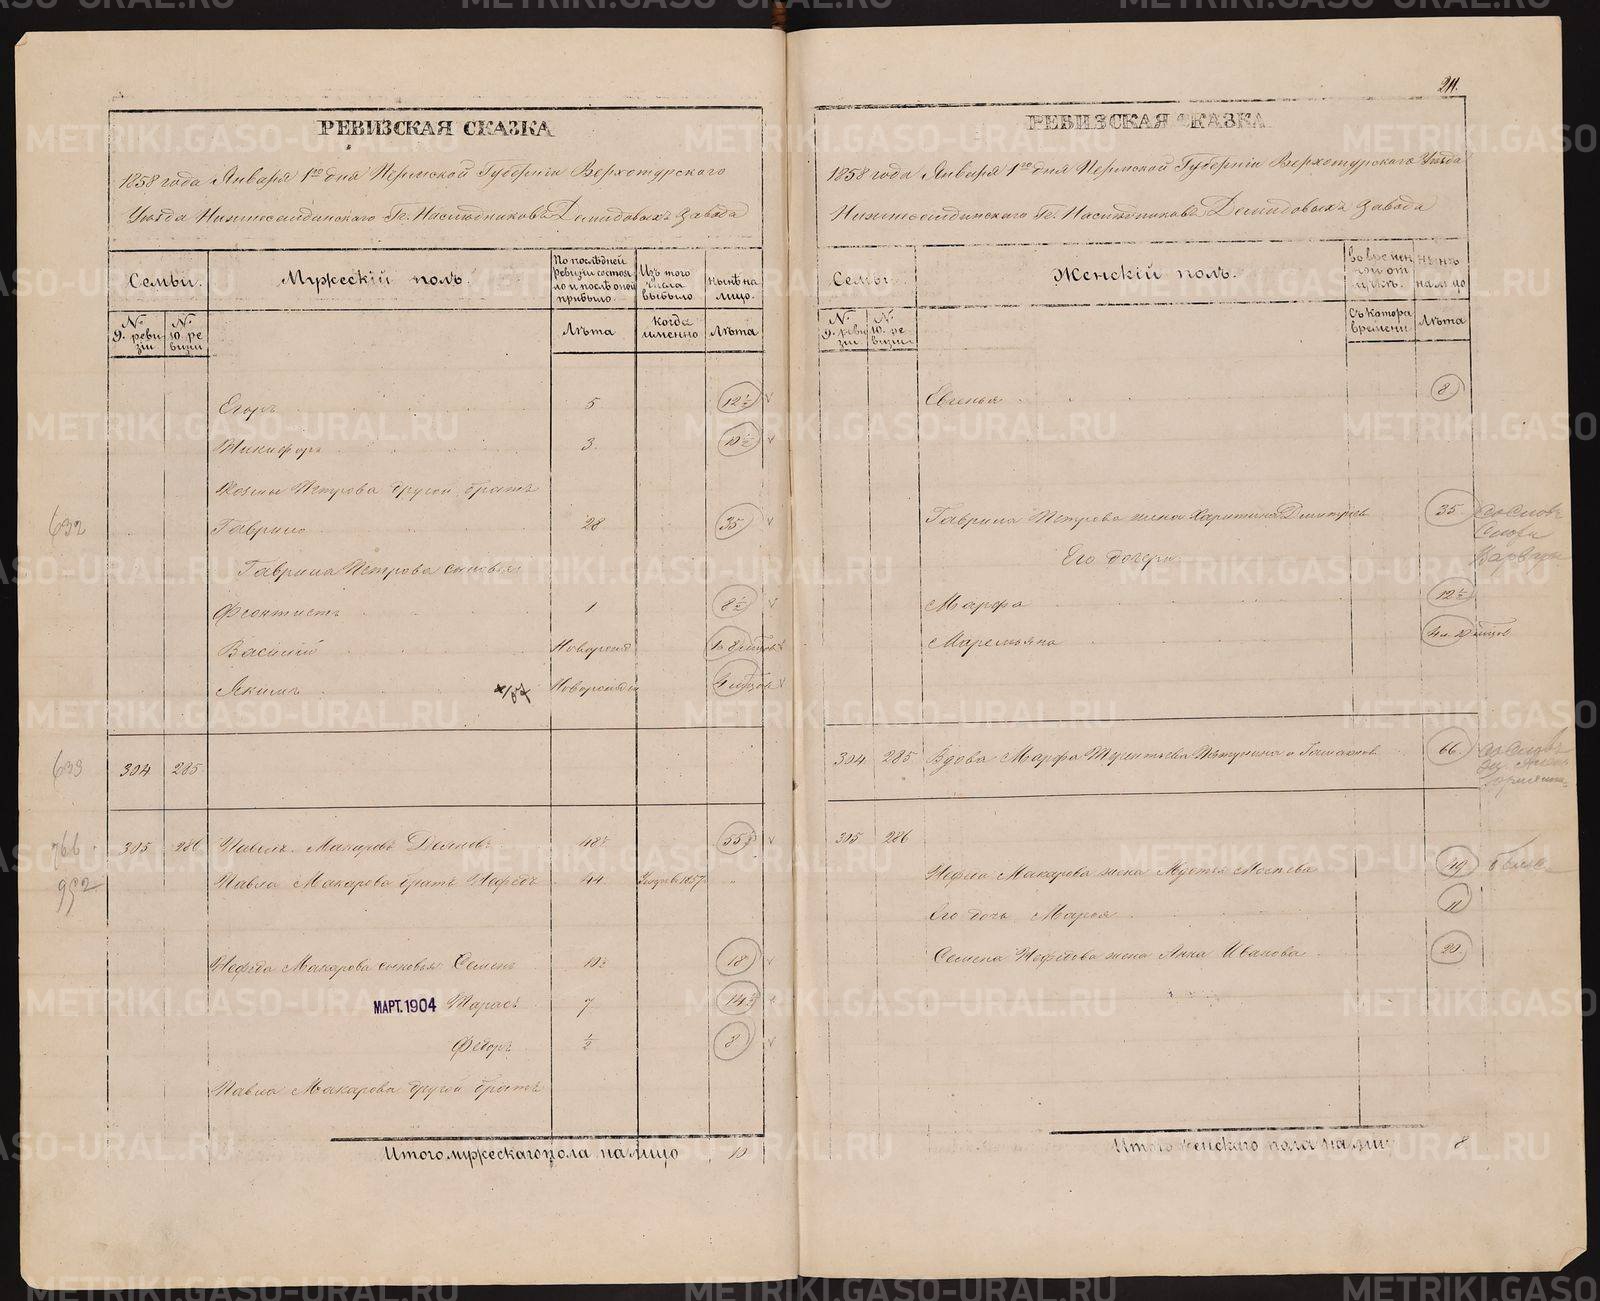 РЕВИЗСКАЯ СКАЗКА
1858 года Января 1го дня Пермской Губерніи Верхотурскаго
Уѣзда Нижнесалдинскаго Гг. Наслѣдниковъ Демидовыхъ Завода
Семьи.
Мужескій полъ.
По послѣдней ревизіи состояло и послѣ оной прибыло.
Изъ того числа выбыло
Нынѣ на лицо.
№ 9. ревизіи
№ 10. ревизіи
Лѣта
Когда именно
Лѣта
Егоръ 5 12½
Никифоръ 3. 10½
Петрова другой братъ
632 Гаврило 28 35
Гаврила Петрова сыновья
Феоктистъ 1 8½
Василій Новорожд
Якимъ Новорожден
633 304 285
766 305 286 Павелъ Макаровъ 48½ 55½
952 Павла Макарова братъ Нефедъ 44 1857
Нефеда Макарова сыновья Семенъ 10½ 18
МАРТ.1904 Тарасъ 7 14½
Федоръ ½ 8
Павла Макарова другой братъ
Итого мужескаго пола на лицо 10
211.
РЕВИЗСКАЯ СКАЗКА
1858 года Января 1го дня Пермской Губерніи Верхотурскаго Уѣзда
Нижнесалдинскаго Гг. Наслѣдниковъ Демидовыхъ Завода
Семьи.
Женскій полъ.
Во временной отлучкѣ.
Нынѣ на лицо
№ 9. ревизіи
№ 10. ревизіи
Съ котора времени
Лѣта
Евгенья 8
Гаврила Петрова жена Харитина Дмитріева 35
Его дочери
Марфа 12½
Маремьяна
304 285 Вдова Марфа 66
305 286
Нефеда Макарова жена 49
Его дочь Марья 11
Семена Нефедова жена Анна Иванова 20
Итого женскаго пола на лицо 8
METRIKI.GASO-URAL.RU